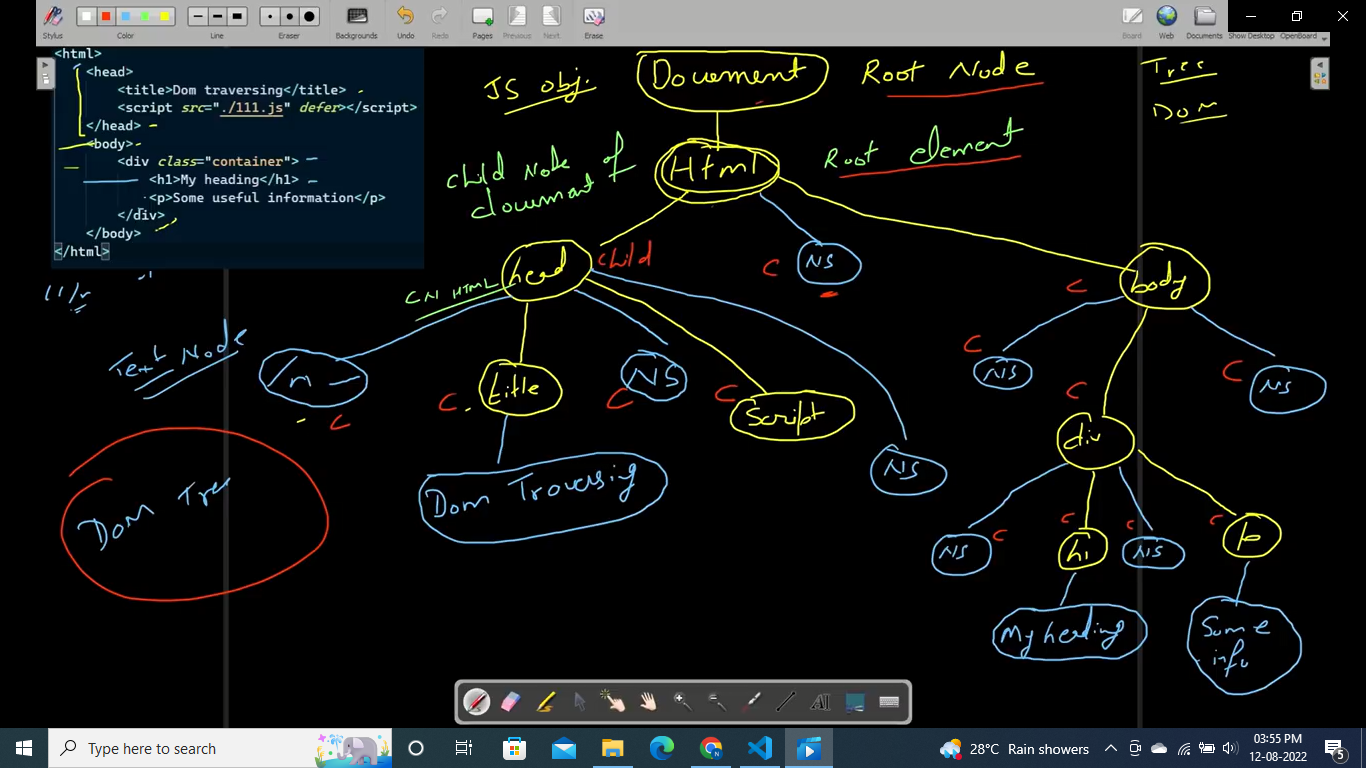 Stylus
Color
Line
Eraser
Backgrounds
Undo
Redo
Pages
Previous
Next
Erase
Board
Web
Documents
Show Desktop
OpenBoard
<html>
<head>
<title>Dom traversing</title>
<script src="./111.js" defer></script>
</head>
<body>
<div class="container">
<h1>My heading</h1>
<p>Some useful information</p>
</div>
</body>
</html>
JS obj.
Document
Root Node
Tree
DOM
Child Node of
document
Html
Root element
head
child
C
NS
C
body
CN HTML
Text Node
\n
C
C
title
C
NS
C
Script
NS
C
NS
C
NS
C
div
Dom Tree
Dom Traversing
NS
C
C
h1
C
NS
C
p
My heading
Some
info
Type here to search
28°C Rain showers
03:55 PM
12-08-2022
5